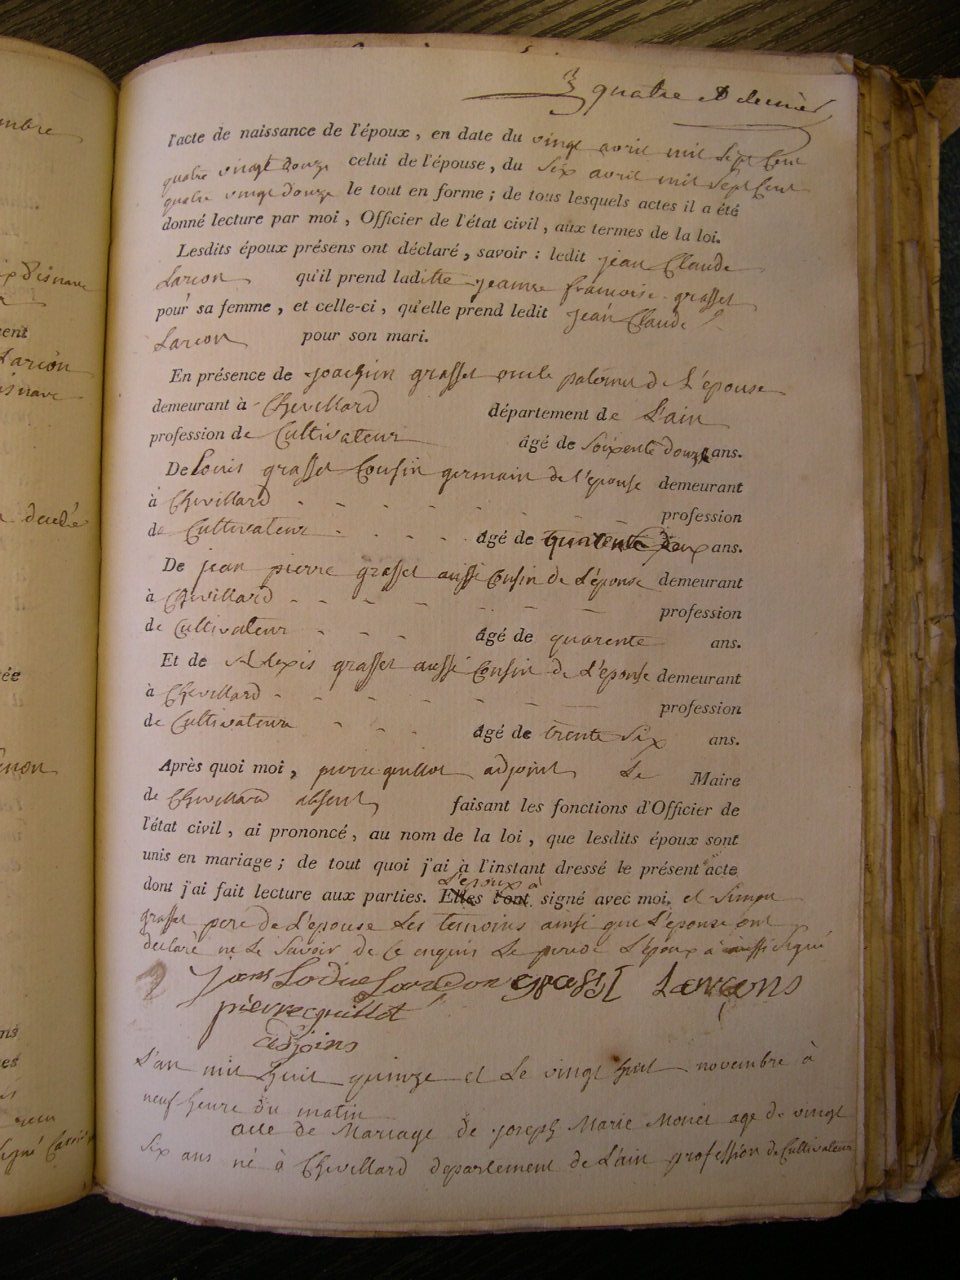 quatre et dernier
l'acte de naissance de l'époux, en date du vingt avril mil sept cent
quatre vingt douze celui de l'épouse, du six avril mil sept cent
quatre vingt douze le tout en forme; de tous lesquels actes il a été
donné lecture par moi, Officier de l'état civil, aux termes de la loi.
Lesdits époux présens ont déclaré, savoir: ledit jean Claude
Larcon qu'il prend laditte jeanne francoise grasset
pour sa femme, et celle-ci, qu'elle prend ledit jean Claude
Larcon pour son mari.
En présence de joachim grasset oncle paternel de L'épouse
demeurant à Chevillard département de L'ain
profession de Cultivateur âgé de soixente douze ans.
De Louis grasset Cousin germain de l'épouse demeurant
à Chevillard - - - - - - profession
de Cultivateur - - - - âgé de deux ans.
De jean pierre grasset aussi Cousin de L'épouse demeurant
à Chevillard - - - - - - profession
de Cultivateur - - - âgé de quarente ans.
Et de Alexis grasset aussi Cousin de L'épouse demeurant
à Chevillard - - - - - - profession
de Cultivateur - - - âgé de trente six ans.
Après quoi moi, pierre quillot adjoint Le Maire
de Chevillard absent faisant les fonctions d'Officier de
l'état civil, ai prononcé, au nom de la loi, que lesdits époux sont
unis en mariage; de tout quoi j'ai à l'instant dressé le présent acte
dont j'ai fait lecture aux parties. Elles l'ont L'époux a signé avec moi, et Simon
grasset pere de L'épouse Les temoins ainsi que L'épouse ont
declaré ne Le Savoir de Ce enquis Le pere de L'époux a aussi signé
grasset Larcons
pierre quillot
adjoins
L'an mil huit quinze et Le vingt huit novembre à
neuf heure du matin
acte de Mariage de joseph Marie Monet age de vingt
six ans né à Chevillard departement de L'ain profession de Cultivateur